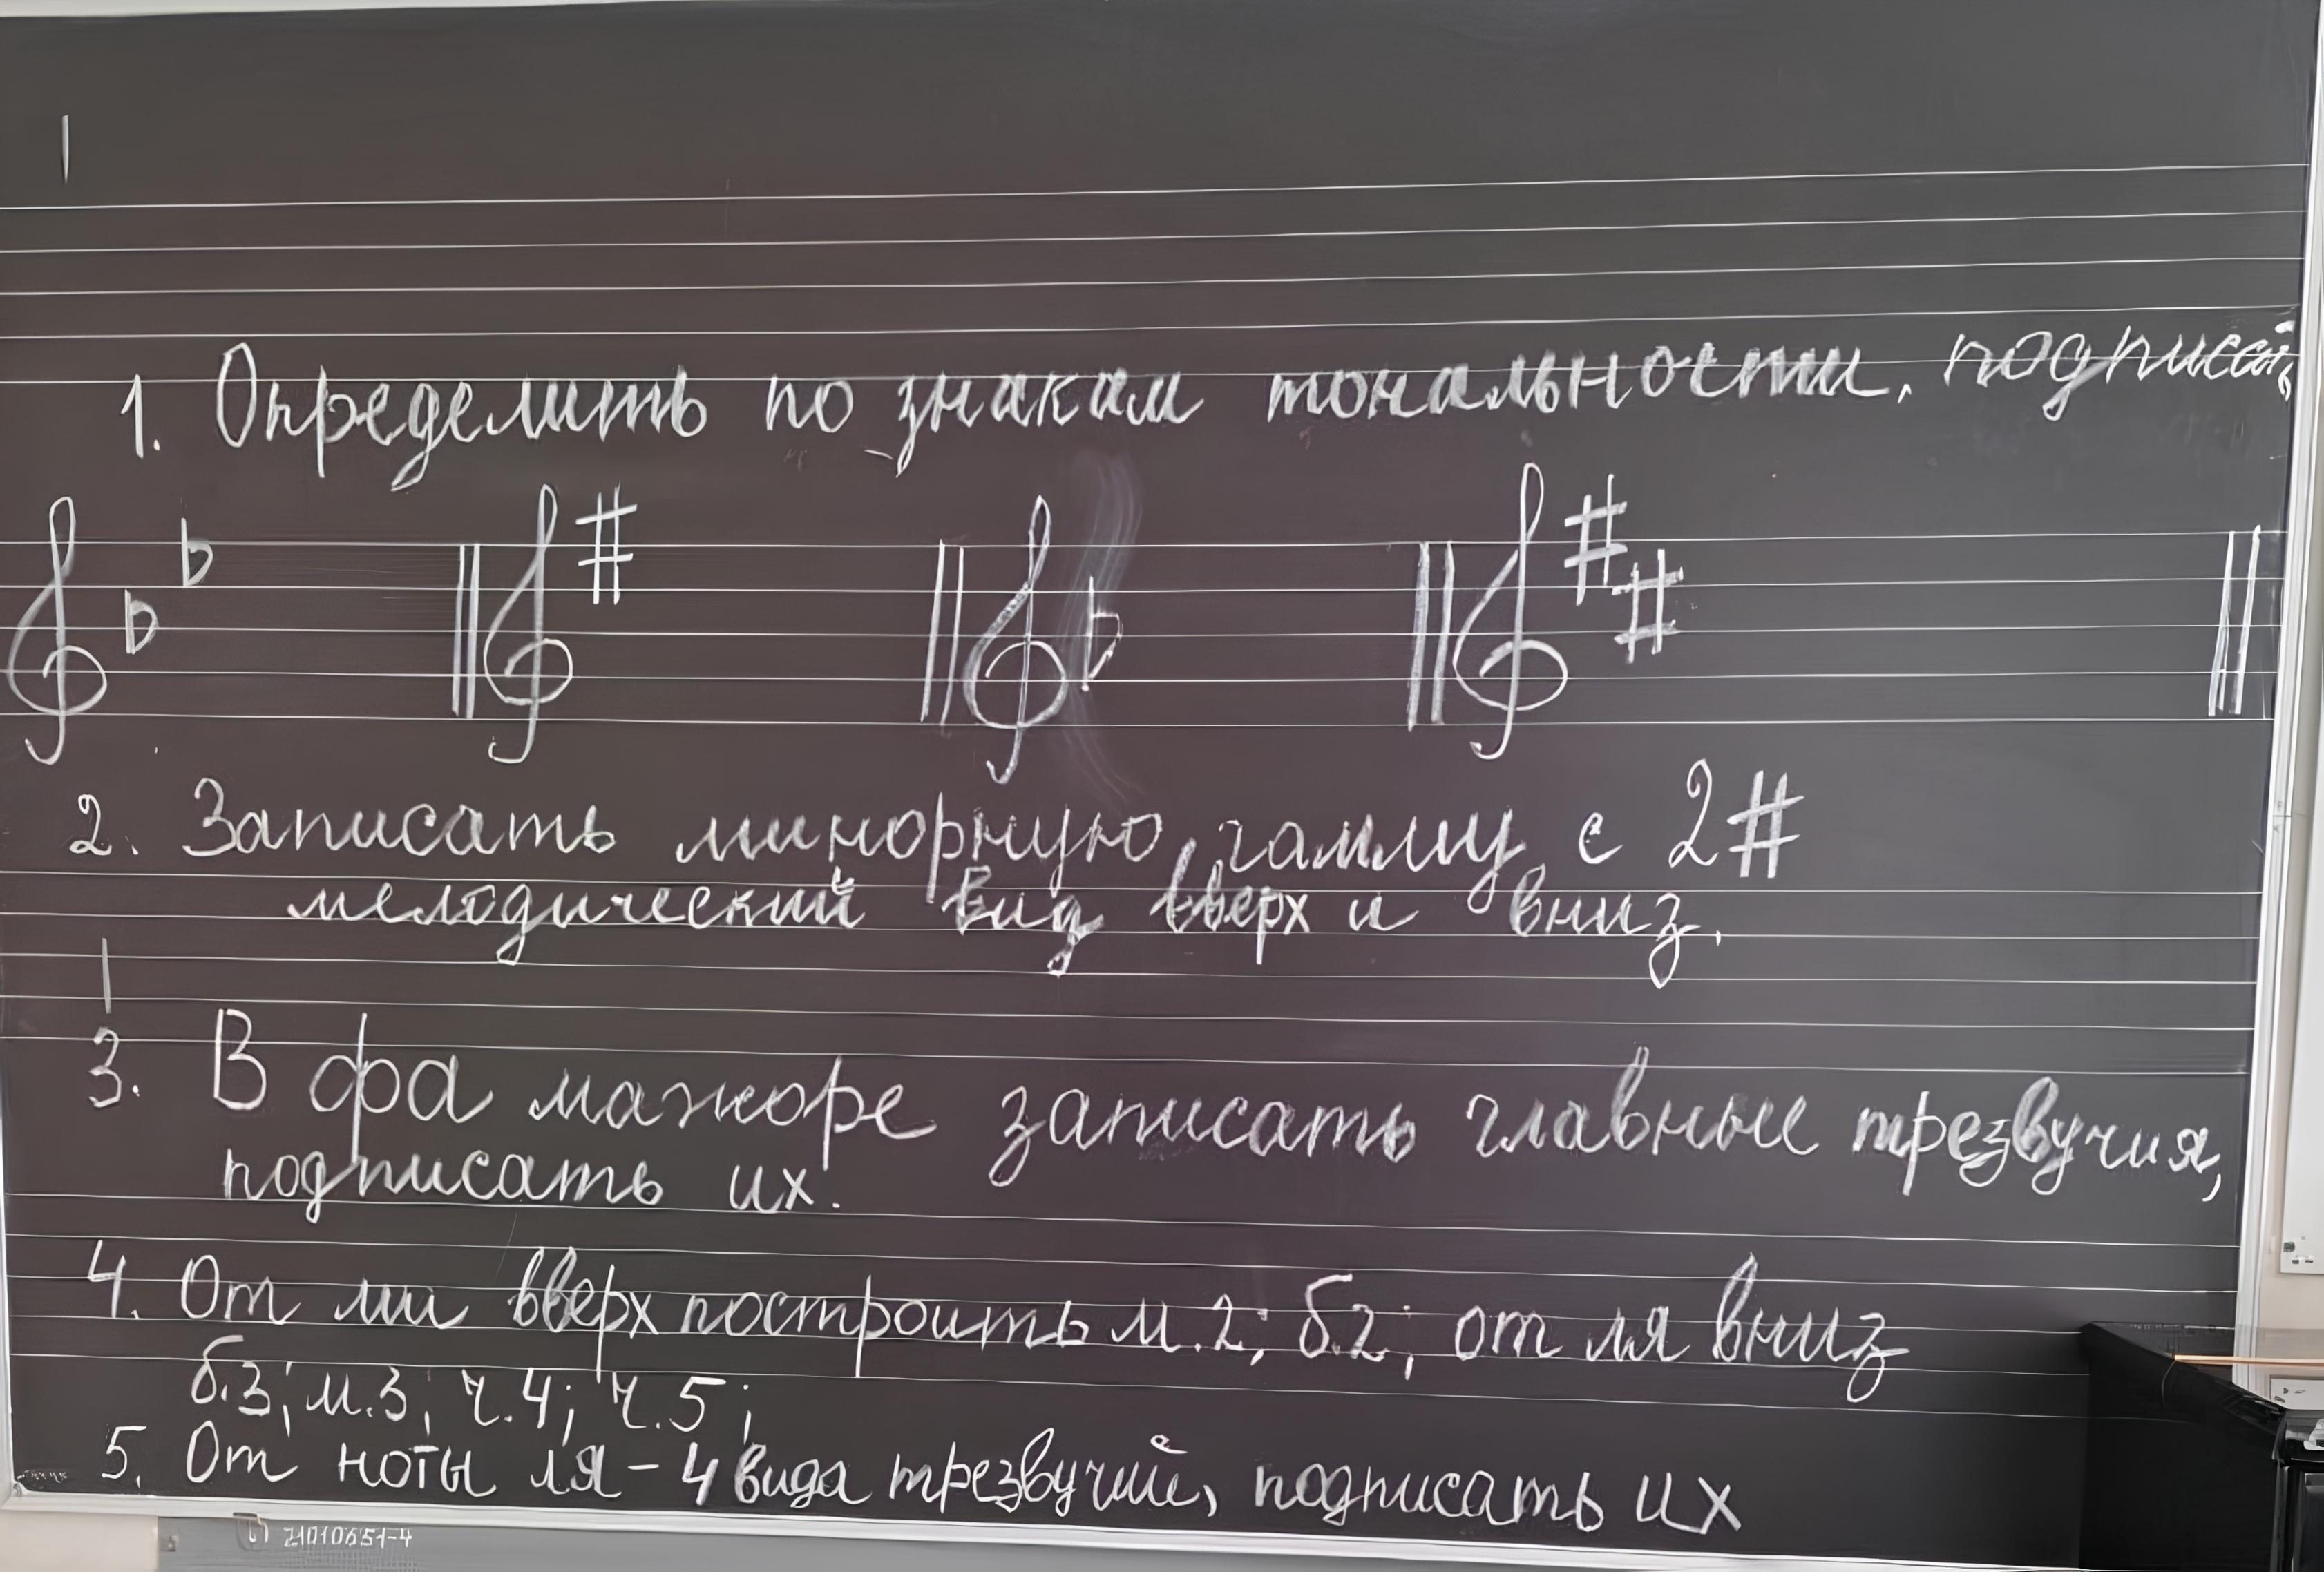 1. Определить по знакам тональности, подписать
2. Записать минорную гамму с 2#
мелодический вид вверх и вниз.
3. В фа мажоре записать главные трезвучия,
подписать их.
4. От ми вверх построить м.2; б.2; от ля вниз
б.3; м.3; ч.4; ч.5;
5. От ноты ля – 4 вида трезвучий, подписать их
21010651-4